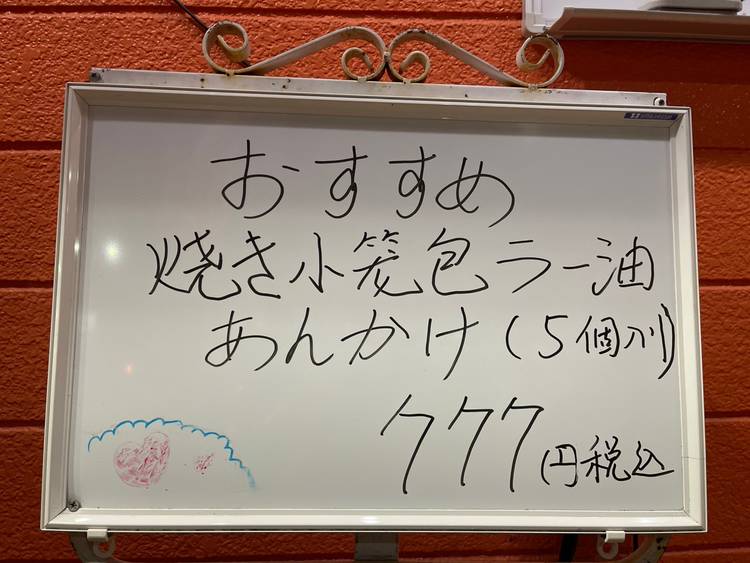 おすすめ
焼き小籠包ラー油
あんかけ(5個入り)
777円税込